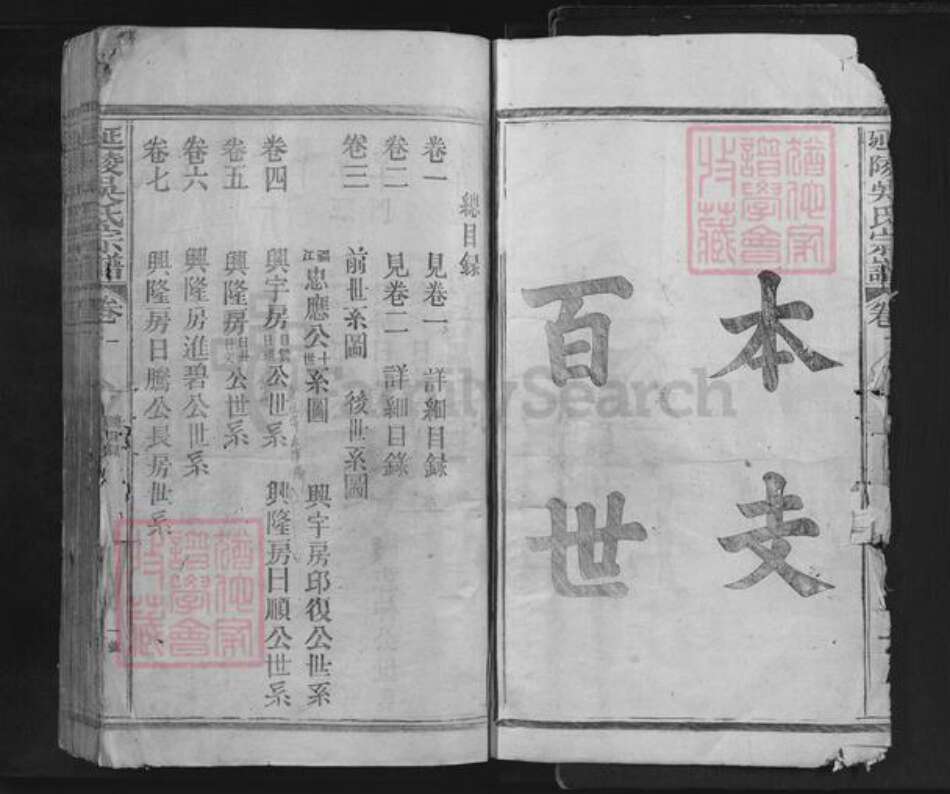 延陵吳氏宗譜
卷
本支
百世
猶他家譜學會收藏
總目錄
卷一 見卷一 詳細目錄
卷二 見卷二 詳細目錄
卷三 前世系圖 後世系圖
忠應公十世系圖 興宇房邱復公世系
卷四 興宇房公世系 興隆房日順公世系
卷五 興隆房公世系
卷六 興隆房進碧公世系
卷七 興隆房日騰公長房世系
延陵吳氏宗譜
卷一
猶他家譜學會收藏
FamilySearch